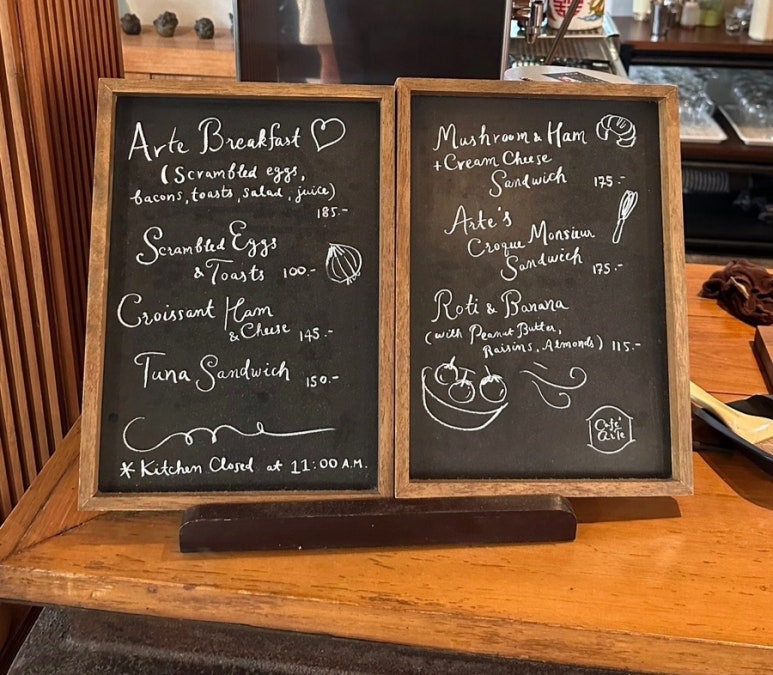 Arte Breakfast
(Scrambled eggs,
bacons, toasts, salad, juice)
185.-
Scrambled Eggs
& Toasts 100.-
Croissant Ham
& Cheese 145.-
Tuna Sandwich 150.-
* Kitchen Closed at 11:00 A.M.
Mushroom & Ham
+ Cream Cheese
Sandwich 175.-
Arte's
Croque Monsieur
Sandwich 175.-
Roti & Banana
(with Peanut Butter,
Raisins, Almonds) 115.-
Café
Arte